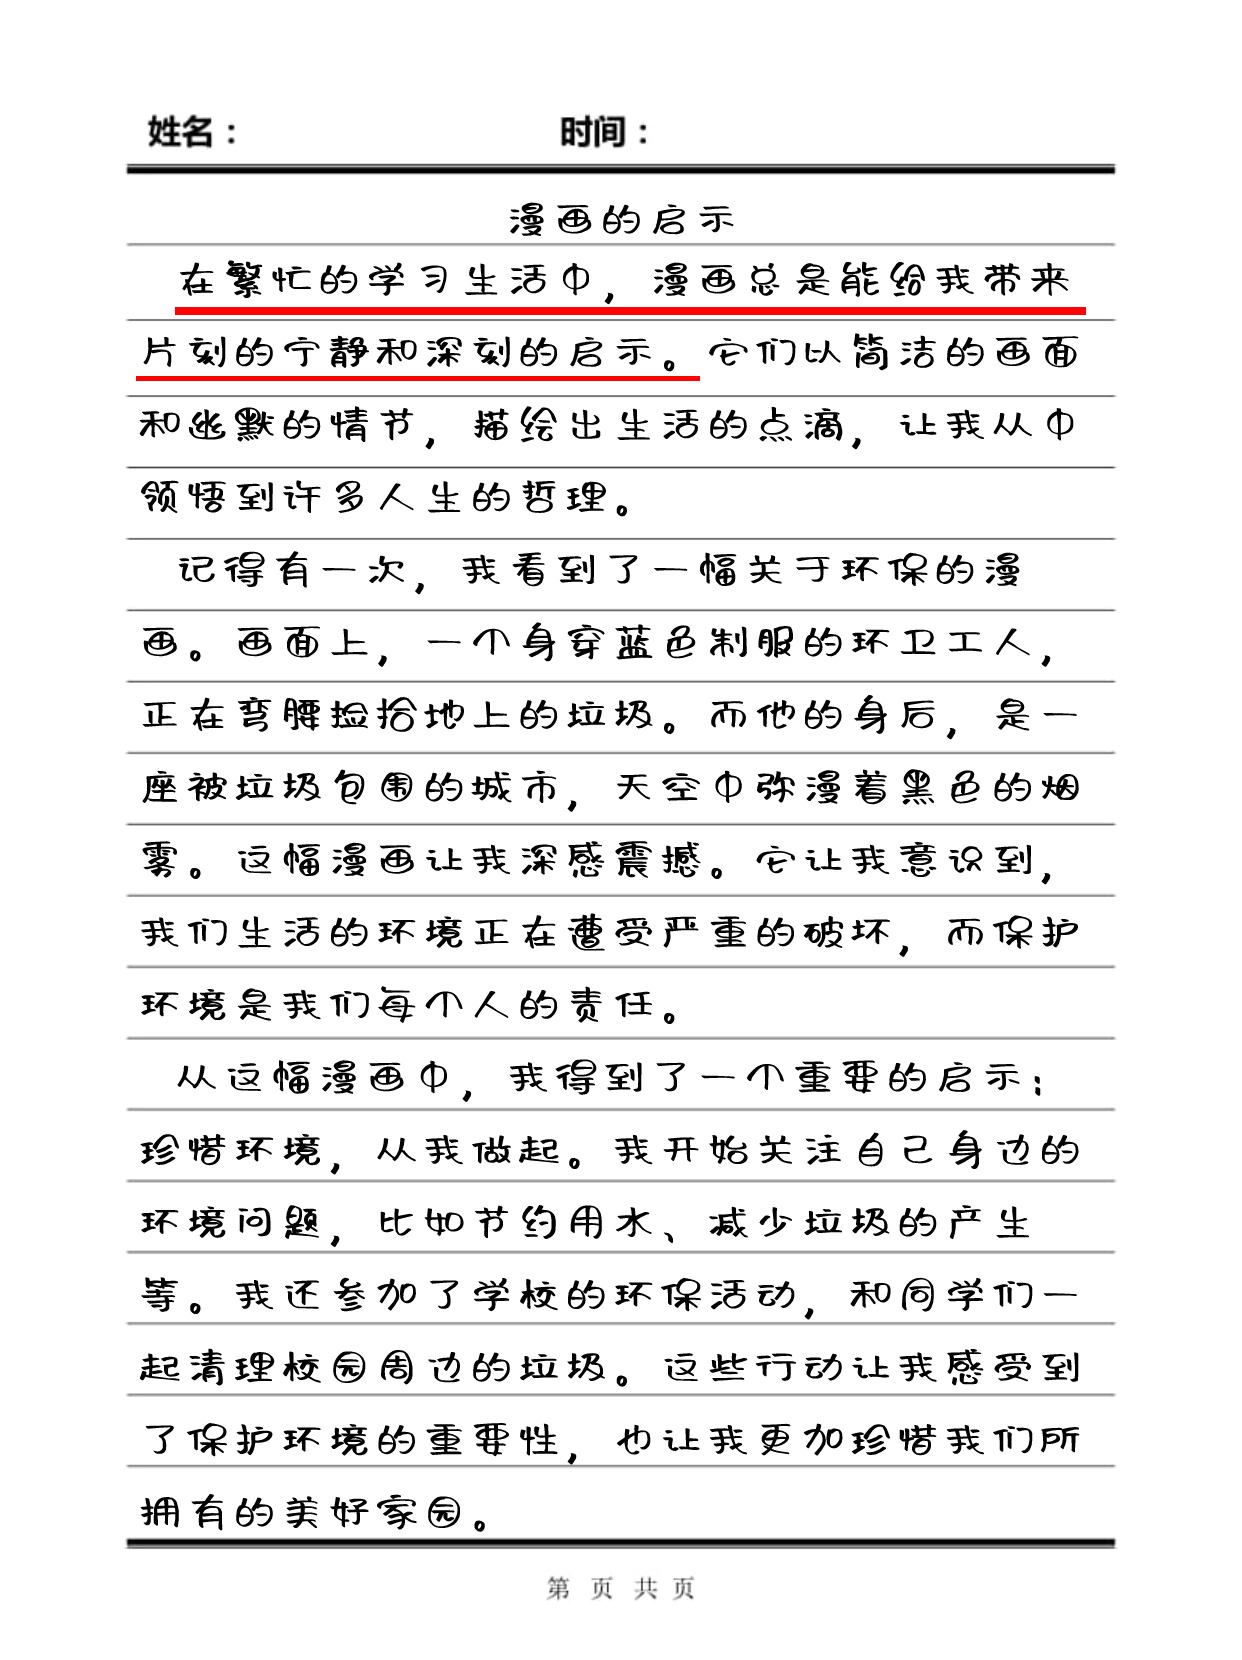 姓名： 时间：
漫画的启示
在繁忙的学习生活中，漫画总是能给我带来
片刻的宁静和深刻的启示。它们以简洁的画面
和幽默的情节，描绘出生活的点滴，让我从中
领悟到许多人生的哲理。
记得有一次，我看到了一幅关于环保的漫
画。画面上，一个身穿蓝色制服的环卫工人，
正在弯腰捡拾地上的垃圾。而他的身后，是一
座被垃圾包围的城市，天空中弥漫着黑色的烟
雾。这幅漫画让我深感震撼。它让我意识到，
我们生活的环境正在遭受严重的破坏，而保护
环境是我们每个人的责任。
从这幅漫画中，我得到了一个重要的启示：
珍惜环境，从我做起。我开始关注自己身边的
环境问题，比如节约用水、减少垃圾的产生
等。我还参加了学校的环保活动，和同学们一
起清理校园周边的垃圾。这些行动让我感受到
了保护环境的重要性，也让我更加珍惜我们所
拥有的美好家园。
第 页 共 页